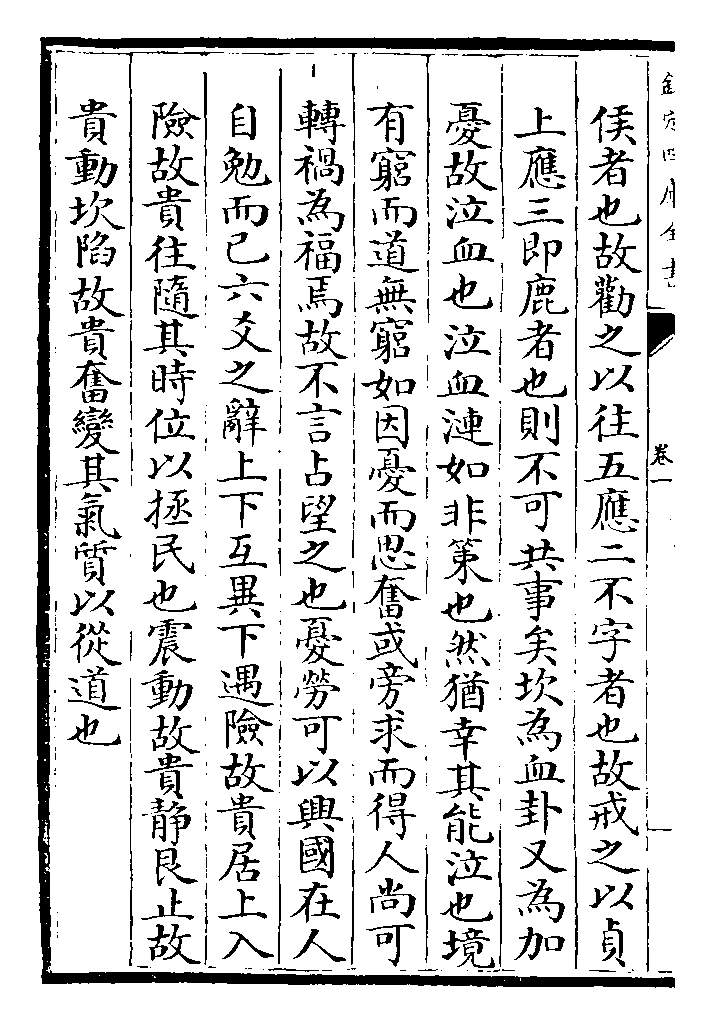 欽定四庫全書
卷一
侯者也故勸之以往五應二不字者也故戒之以貞
上應三即鹿者也則不可共事矣坎為血卦又為加
憂故泣血也泣血漣如非策也然猶幸其能泣也境
有窮而道無窮如因憂而思奮或旁求而得人尚可
轉禍為福焉故不言占望之也憂勞可以興國在人
自勉而已六爻之辭上下互異下遇險故貴居上入
險故貴往隨其時位以拯民也震動故貴靜艮止故
貴動坎陷故貴奮變其氣質以從道也